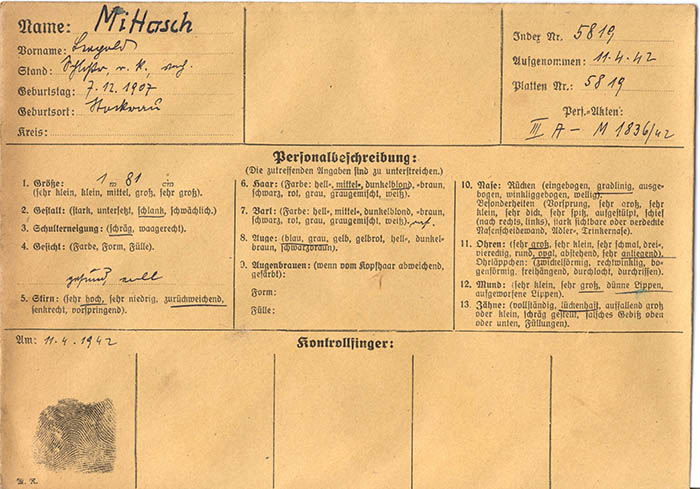 Name: Mittasch
Vorname: Leopold
Stand: r. k.,
Geburtstag: 7.12.1907
Geburtsort: Stockerau
Kreis:
Index Nr. 5819
Aufgenommen: 11.4.42
Platten Nr.: 5819
Pers.-Akten:
III A - M 1836/42
Personalbeschreibung:
(Die zutreffenden Angaben sind zu unterstreichen.)
1. Größe: 1 m 81 cm
(sehr klein, klein, mittel, groß, sehr groß).
2. Gestalt: (stark, untersetzt, schlank, schwächlich).
3. Schulterneigung: (schräg, waagerecht).
4. Gesicht: (Farbe, Form, Fülle).
gesund voll
5. Stirn: (sehr hoch, sehr niedrig, zurückweichend,
senkrecht, vorspringend).
6. Haar: (Farbe: hell-, mittel-, dunkelblond, -braun,
schwarz, rot, grau, graugemischt, weiß).
7. Bart: (Farbe: hell-, mittel-, dunkelblond, -braun,
schwarz, rot, grau, graugemischt, weiß).
8. Auge: (blau, grau, gelb, gelbrot, hell-, dunkel-
braun, schwarzbraun).
9. Augenbrauen: (wenn vom Kopfhaar abweichend,
gefärbt):
Form:
Fülle:
10. Nase: Rücken (eingebogen, gradlinig, ausge-
bogen, winkliggebogen, wellig).
Besonderheiten (Vorsprung, sehr groß, sehr
klein, sehr dick, sehr spitz, aufgestülpt, schief
(nach rechts, links), stark sichtbare oder verdeckte
Nasenscheidewand, Adler-, Trinkernase).
11. Ohren: (sehr groß, sehr klein, sehr schmal, drei-,
viereckig, rund, oval, abstehend, sehr anliegend).
Ohrläppchen: (zwickelförmig, rechtwinklig, bo-
genförmig, freihängend, durchlocht, durchrissen).
12. Mund: (sehr klein, sehr groß, dünne Lippen,
aufgeworfene Lippen).
13. Zähne: (vollständig, lückenhaft, auffallend groß
oder klein, schräg gestellt, falsches Gebiß oben
oder unten, Füllungen).
Am: 11.4.1942
Kontrollfinger: